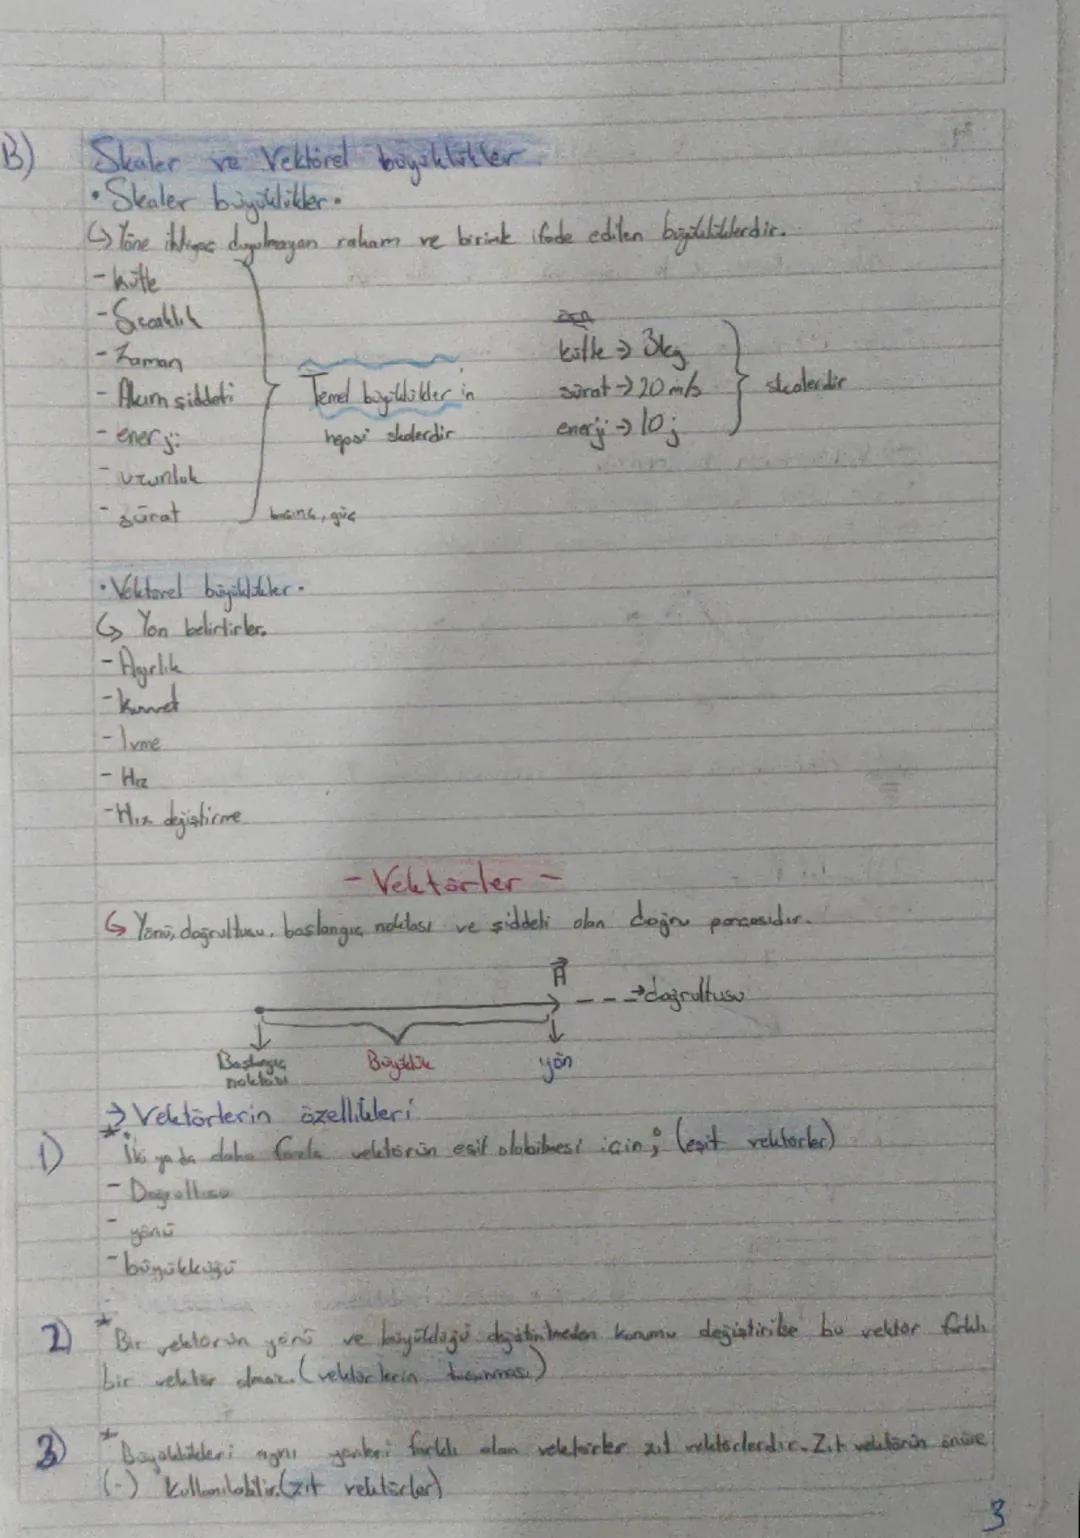 B) Skaler ve Vektörel büyüklükler
• Skaler büyüklükler •
↳ Yöne ihtiyaç duyulmayan rakam ve birimle ifade edilen büyüklüklerdir.
- kütle
- Sıcaklık
- Zaman
- Akım şiddeti
- enerji
- uzunluk
- sürat
basınç, güç
Temel büyüklükler in
hepsi skalerdir
kütle → 3kg
sürat → 20 m/s
enerji → 10 j
skalerdir
• Vektörel büyüklükler •
↳ Yön belirtirler.
- Ağırlık
- Kuvvet
- Ivme
- Hız
- Hız değiştirme
- Vektörler -
↳ Yönü, doğrultusu, başlangıç noktası ve şiddeti olan doğru parçasıdır.
A
→ doğrultusu
Başlangıç
noktası
Büyüklük
yön
→ Vektörlerin özellikleri
1) * İki ya da daha fazla vektörün eşit olabilmesi için; (eşit vektörler)
- Doğrultusu
- yönü
- büyükküğü
2) * Bir vektörün yönü ve büyüklüğü değiştirilmeden konumu değiştirilse bu vektör farklı
bir vektör olmaz. (vektörlerin taşınması)
3) * Büyüklükleri aynı yönleri farklı olan vektörler zıt vektörlerdir. Zıt vektörün önüne
(-) kullanılabilir. (zıt vektörler)
3